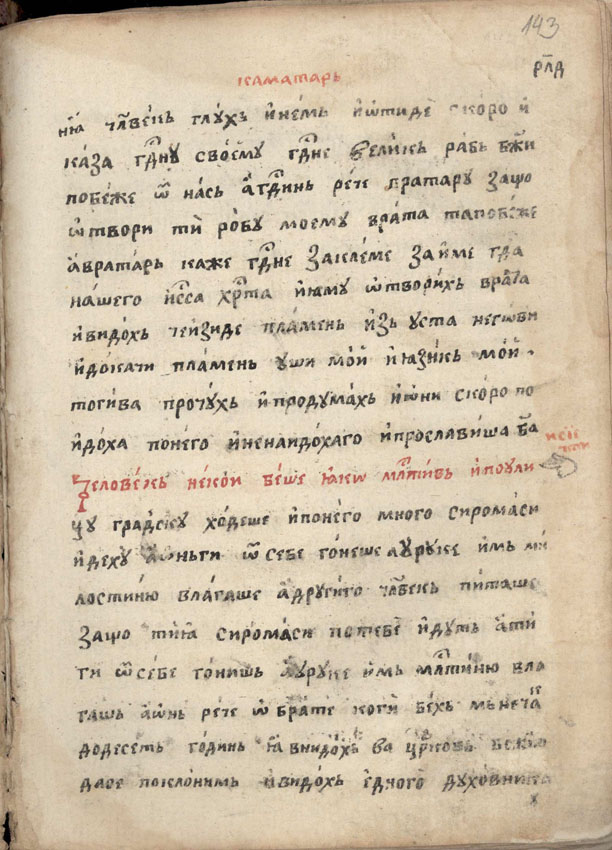 143
рлд
каматарь
ніа чл҃векь глухь и немь и ѿтиде скоро и
каза гд҃ну своему гд҃не великь рабь бж҃и
побеже ѿ нась а гд҃инь рече вратару зашо
ѿтвори ти робу моему врата та побеже
а вратарь каже гд҃не заклеме за име гд҃а
нашего ис҃са хр҃та и іаму ѿтворихь врата
и видохь че изиде пламень изь уста негови
и докачи пламень уши мои и іазикь мои
тогива прочухь и продумахь и ѡни скоро по
идоха по него и не наидоха го и прославиша ба҃
Человекь некои беше іако мл҃тивь и по ули
цу градску ходеше и по него много сиромаси
идеху а ѡньги ѿ себе гонеше а у руке имь ми
лостиню влагаше а другиго чл҃векь питаше
зашо тиіа сиромаси по тебе идуть а ти
ги ѿ себе гонишь а у руке имь мл҃тиню вла
гашь а ѡнь рече ѡ брате коги бехь мь нети
додесеть годинь іа внидохь ва цр҃ковь божію
да се поклонимь и видохь едного духовника